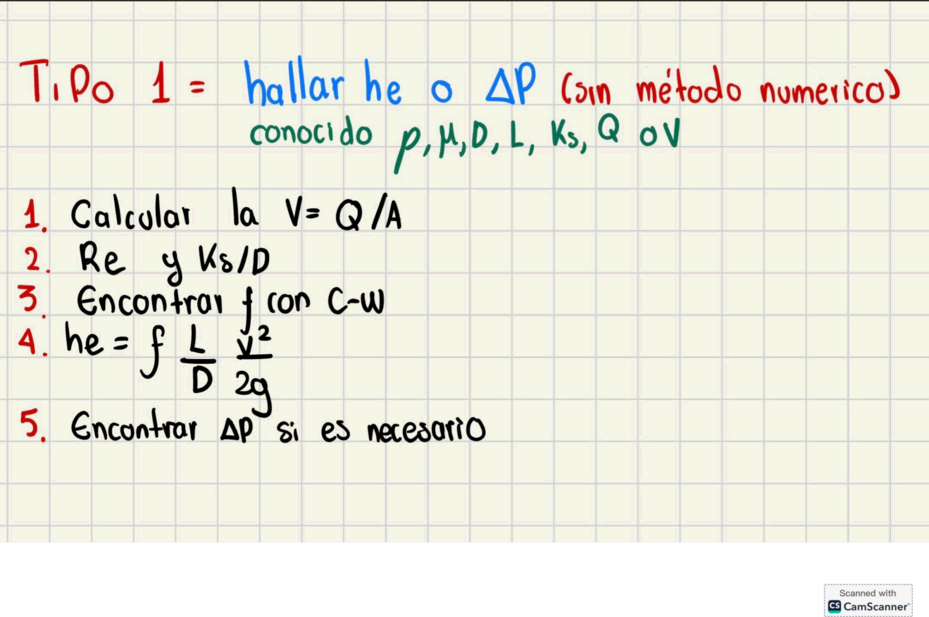 Tipo 1 = hallar he o ΔP (sin método numerico)
conocido ρ, μ, D, L, Ks, Q o V
1. Calcular la V= Q/A
2. Re y Ks/D
3. Encontrar f con C-W
4. he = f L/D V²/2g
5. Encontrar ΔP si es necesario
Scanned with
CS CamScanner